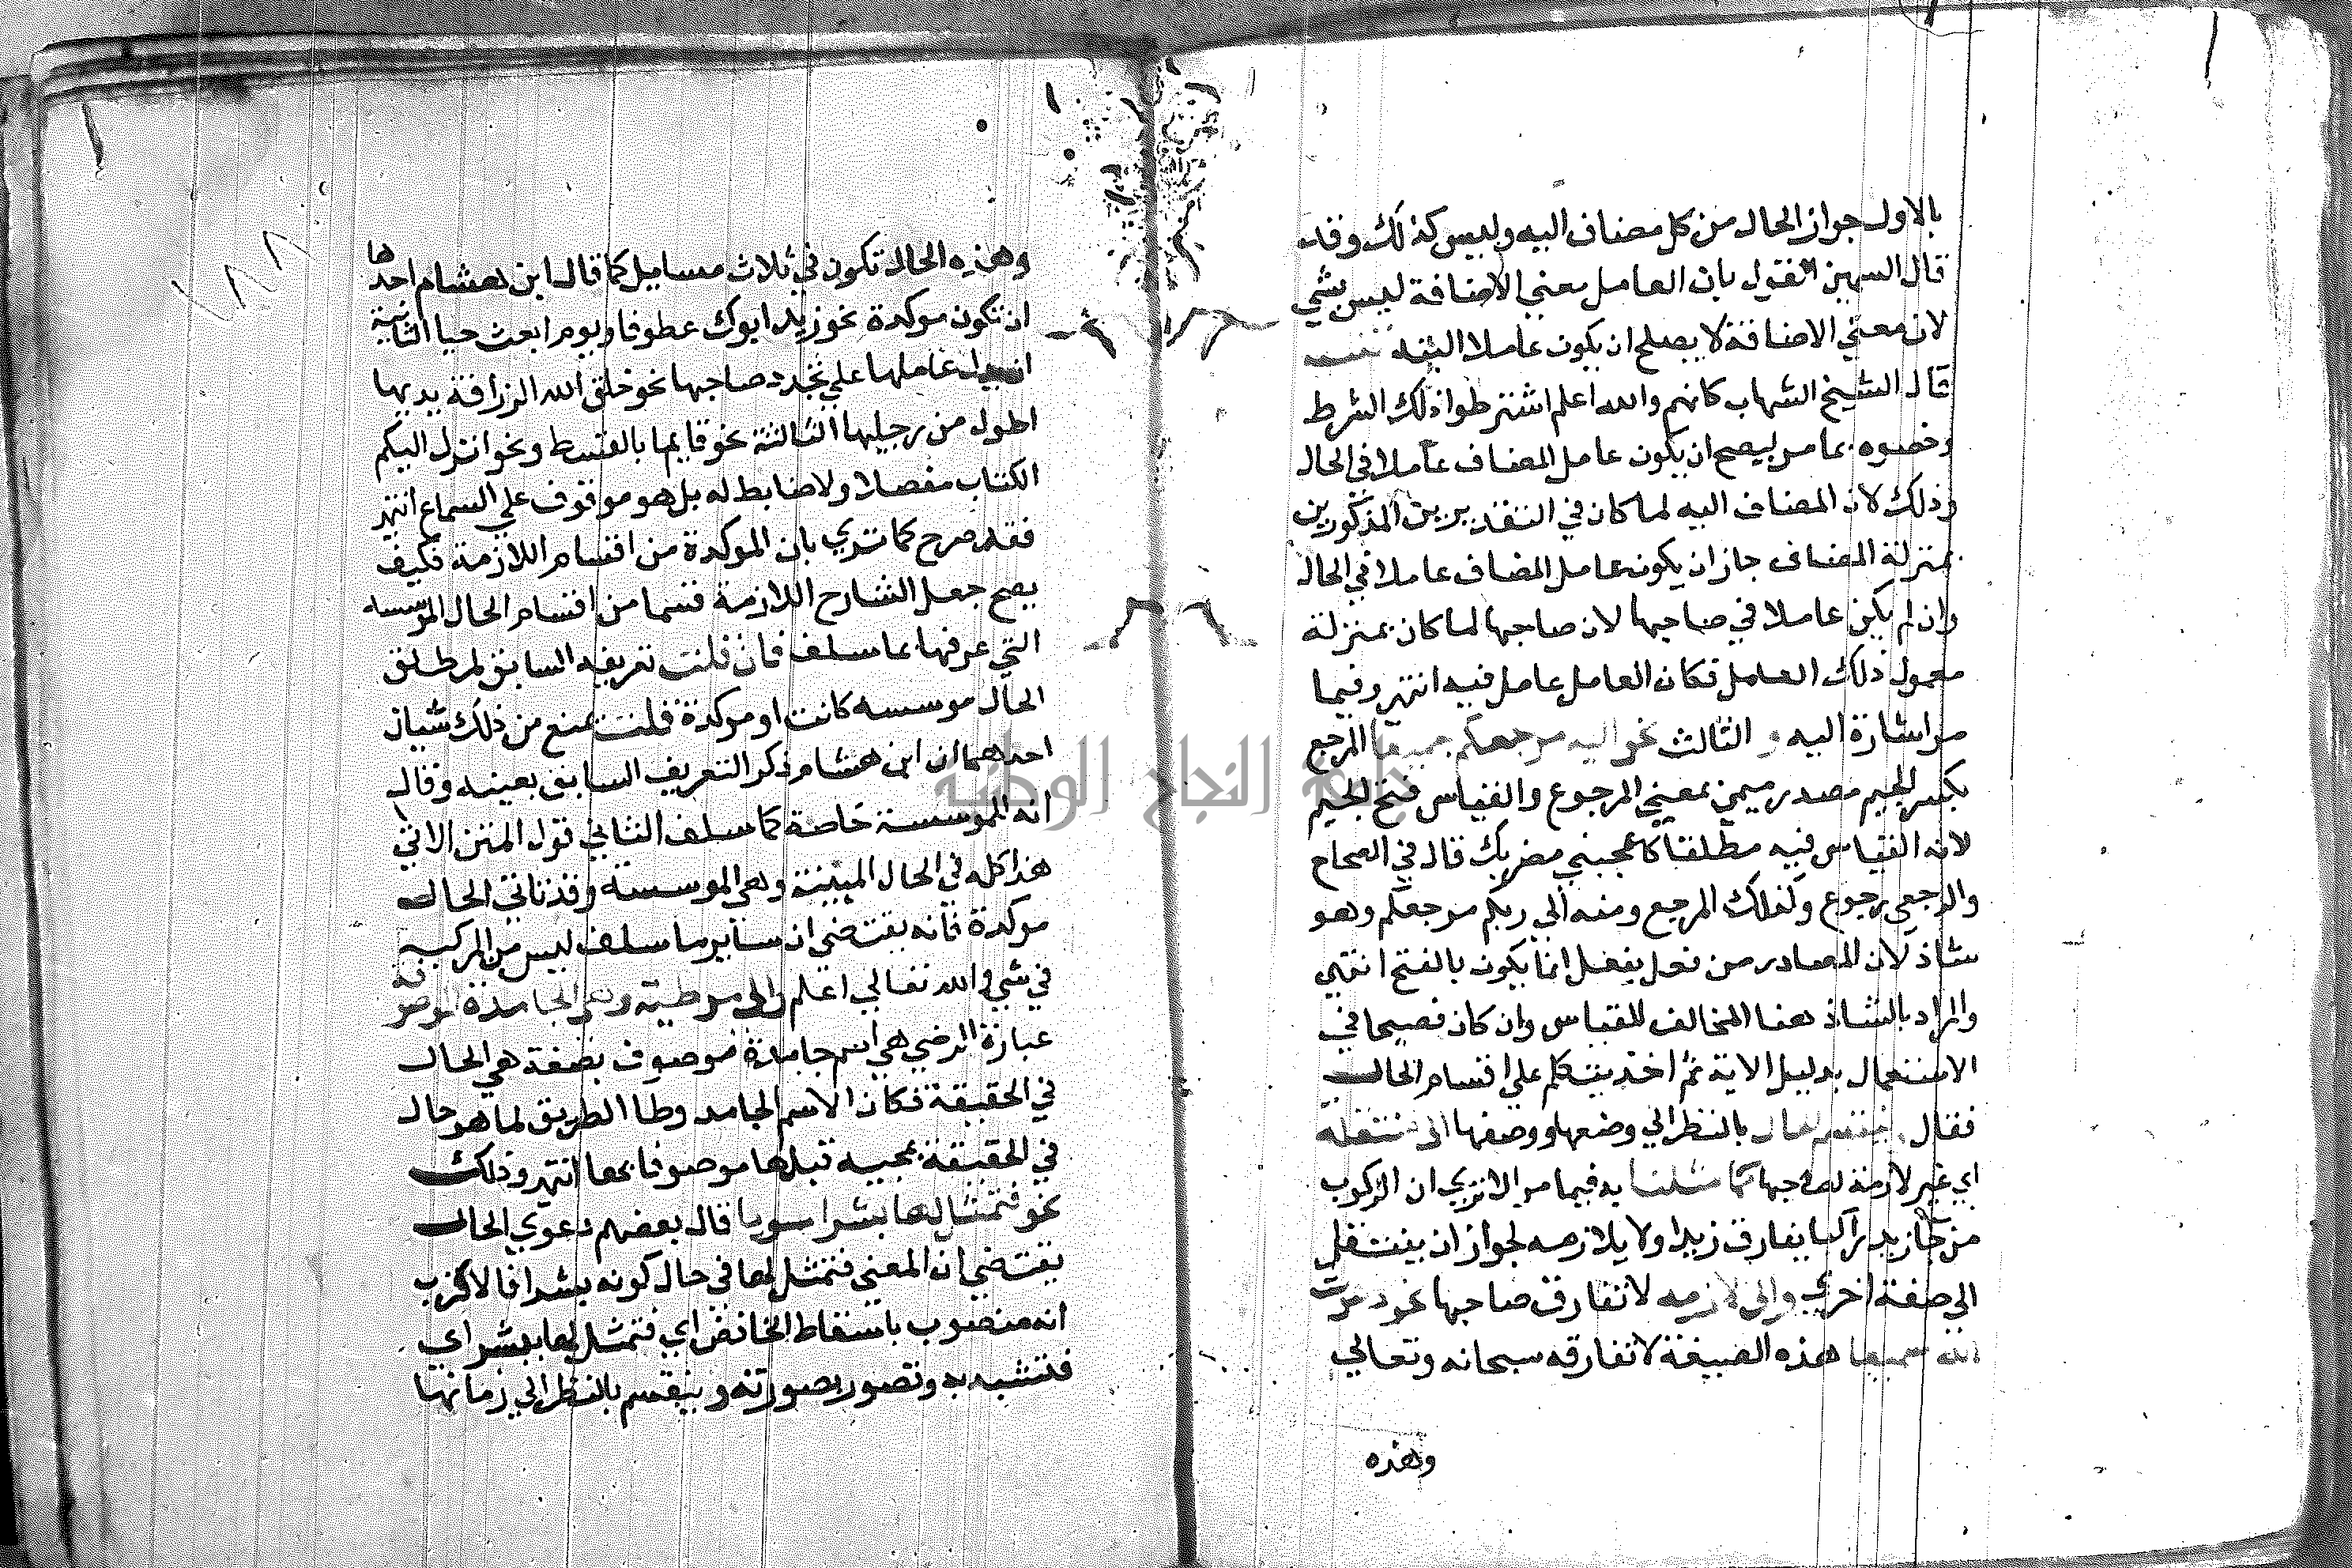 بالاول جواز الحال من كل مضاف اليه وليس كذلك وقد
قال السمين القول بان العامل معني الاضافة ليس بشي
لان معني الاضافة لا يصلح ان يكون عاملا البتة
قال الشيخ الشهاب كانهم والله اعلم اشترطوا ذلك الشرط
وخصوه بما مر ليصح ان يكون عامل المضاف عاملا في الحال
وذلك لان المضاف اليه لما كان في التقديرين المذكورين
بمنزلة المضاف جاز ان يكون عامل المضاف عاملا في الحال
وان لم يكن عاملا في صاحبها لان صاحبها لما كان بمنزلة
معمول ذلك العامل فكان العامل عامل فيه انتهي وفيما
مر اشارة اليه و الثالث نحو اليه مرجعكم جميعا المرجع
بكسر الجيم مصدر ميمي بمعني الرجوع والقياس فتح الجيم
لانه القياس فيه مطلقا كاعجبني مضربك قال في الصحاح
والرجعي رجوع وكذلك المرجع ومنه الي ربكم مرجعكم وهو
شاذ لان المصادر من فعل يفعل انما يكون بالفتح انتهي
والمراد بالشاذ هنا المخالف للقياس وان كان فصيحا في
الاستعمال بدليل الاية ثم اخذ يتكلم علي اقسام الحال
فقال بالنظر الي وضعها ووصفها الي منتقلة
اي غير لازمة لصاحبها كما مثلنا به فيما مر الا تري ان الركوب
من جا زيد راكبا يفارق زيدا ولا يلازمه لجواز ان ينتقل
الي صفة اخري والي لازمه لا تفارق صاحبها نحو دعوت
الله سميعا هذه الصيغة لا تفارقه سبحانه وتعالي
وهذه
١٨٨
وهذه الحال تكون في ثلاث مسايل كما قال ابن هشام احدها
ان تكون موكدة نحو زيد ابوك عطوفا ويوم ابعث حيا الثانية
ان يدل عاملها علي تجدد صاحبها نحو خلق الله الزرافة يديها
اطول من رجليها الثالثة نحو قايما بالقسط ونحو انزل اليكم
الكتاب مفصلا ولا ضابط له بل هو موقوف علي السماع انتهي
فقد صرح كما تري بان الموكدة من اقسام اللازمة فكيف
يصح جعل الشارح اللازمة قسما من اقسام الحال الموسسه
التي عرفها بما سلف فان قلت تعريفه السابق لمطلق
الحال موسسه كانت او موكدة قلت يمنع من ذلك شيان
احدهما ان ابن هشام ذكر التعريف السابق بعينه وقال
انه للموسسة خاصة كما سلف الثاني قول المتن الاتي
هذا كله في الحال المبينة وهي الموسسة وقد تاتي الحال
موكدة فانه يقتضي ان ساير ما سلف ليس من المركبه
في شي والله تعالي اعلم والي موطية وهي الجامدة الموصوفة
عبارة الرضي هي اسم جامدة موصوف بصفة هي الحال
في الحقيقة فكان الاسم الجامد وطا الطريق لما هو حال
في الحقيقة بمجييه قبلها موصوفا بها انتهي وذلك
نحو فتمثل لها بشرا سويا قال بعضهم دعوي الحال
يقتضي ان المعني فتمثل لها في حال كونه بشرا فالاقرب
انه منصوب باسقاط الخافض اي فتمثل لها ببشر اي
فتشبه به وتصور بصورته وينقسم بالنظر الي زمانها
جامعة النجاح الوطنية